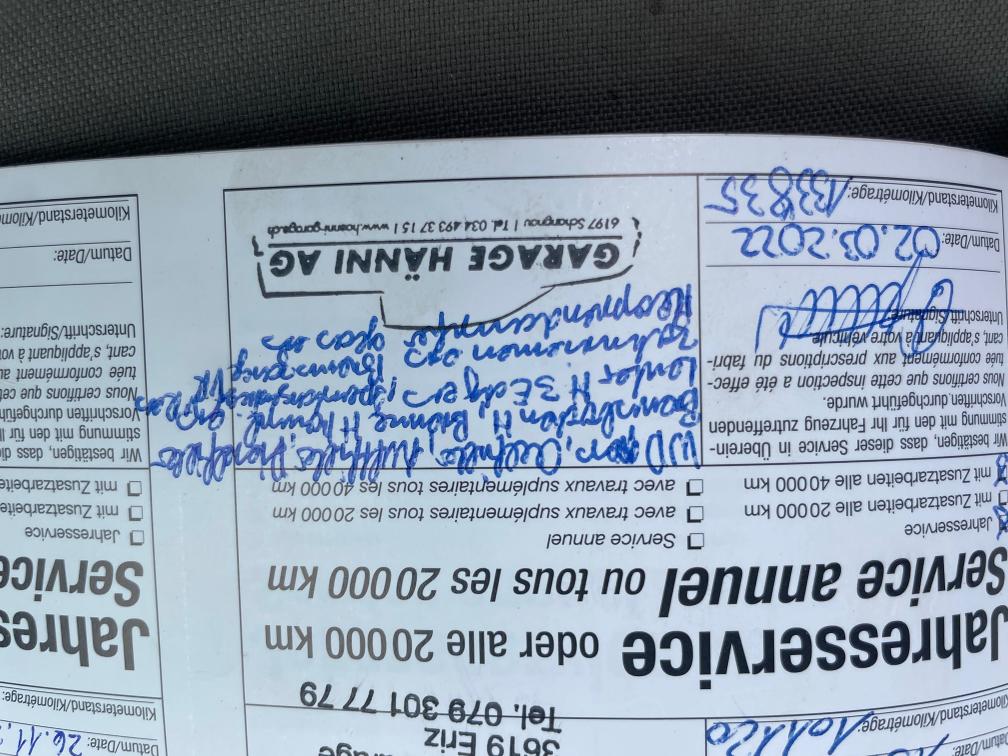 3619 Eriz
Tel. 079 301 77 79
Datum/Date:
Kilometerstand/Kilométrage:
Jahresservice oder alle 20 000 km
Service annuel ou tous les 20 000 km
Jahresservice
mit Zusatzarbeiten alle 20 000 km
mit Zusatzarbeiten alle 40 000 km
Service annuel
avec travaux suplémentaires tous les 20 000 km
avec travaux suplémentaires tous les 40 000 km
Wir bestätigen, dass dieser Service in Überein-
stimmung mit den für Ihr Fahrzeug zutreffenden
Vorschriften durchgeführt wurde.
Nous certifions que cette inspection a été effec-
tuée conformément aux prescriptions du fabri-
cant, s'appliquant à votre véhicule
Unterschrift/Signature:
Datum/Date: 02.03.2022
Kilometerstand/Kilométrage: 133835
WD Oelfilter, Luftfilter,
Bremse H
Lenker H. 3 Eck
Bremszange VR
Zahnriemen ers
GARAGE HÄNNI AG
6197 Schangnau | Tel. 034 493 37 15 | www.haenni-garage.ch
Datum/Date: 26.11.
Kilometerstand/Kilométrage:
Jahres
Service
Jahresservice
mit Zusatzarbeite
mit Zusatzarbeite
Wir bestätigen, dass die
stimmung mit den für I
Vorschriften durchgeführ
Nous certifions que cett
tuée conformément au
cant, s'appliquant à vo
Unterschrift/Signature:
Datum/Date:
Kilometerstand/Kilom